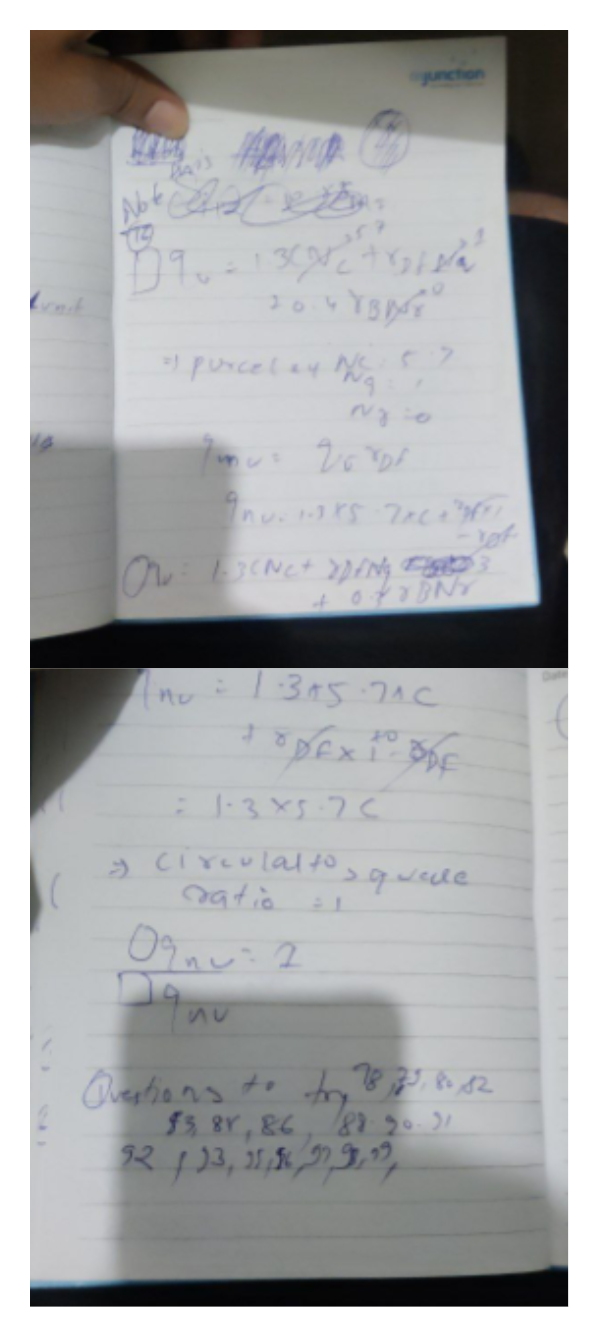 junction
Note
□ q_u = 1.3CN_c^5.7 + γD_f N_q^1
+ 0.4 γBN_r^0
⇒ pure clay Nc = 5.7
Nq = 1
Nγ = 0
q_nu = q_u - γDf
q_nu = 1.3×5.7×C + γDf×1
- γDf
○ q_u = 1.3CNc + γDfNq
+ 0.3 γBNγ
q_nu = 1.3×5.7×C
+ γDf×1 +0 - γDf
= 1.3×5.7C
⇒ circular to square
ratio = 1
○ q_nu = 1
□ q_nu
Questions to try 78, 79, 80, 82
86, 88. 90. 91
92, 93, 95, 96, 97, 98, 99,